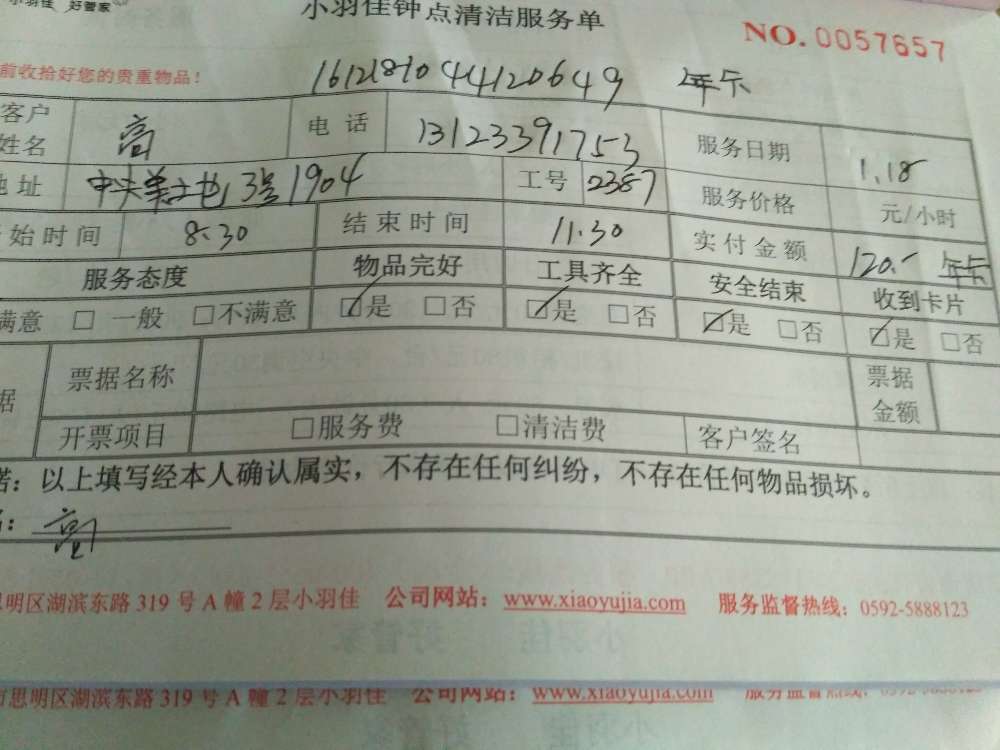 小羽佳 好管家
小羽佳钟点清洁服务单
NO. 0057657
前收拾好您的贵重物品！
1612181044120649 年卡
客户姓名 高 电话 13123391753 服务日期 1.18
地址 中央美地 3号1904 工号 2387 服务价格 元/小时
始时间 8:30 结束时间 11.30 实付金额 120.- 年卡
服务态度 物品完好 工具齐全 安全结束 收到卡片
满意 □ 一般 □不满意 ☑是 □否 ☑是 □否 ☑是 □否 ☑是 □否
据 票据名称 票据金额
开票项目 □服务费 □清洁费 客户签名
诺：以上填写经本人确认属实，不存在任何纠纷，不存在任何物品损坏。
名：
思明区湖滨东路 319 号 A 幢 2 层小羽佳 公司网站：www.xiaoyujia.com 服务监督热线：0592-5888123
市思明区湖滨东路 319 号 A 幢 2 层小羽佳 公司网站：www.xiaoyujia.com 服务监督热线：0592-5888123